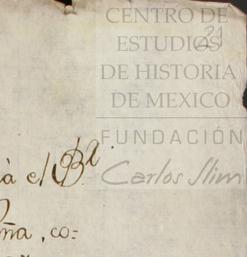 CENTRO DE
ESTUDIOS
21
DE HISTORIA
DE MEXICO
FUNDACIÓN
Carlos Slim
à el B.ª
ña, co=